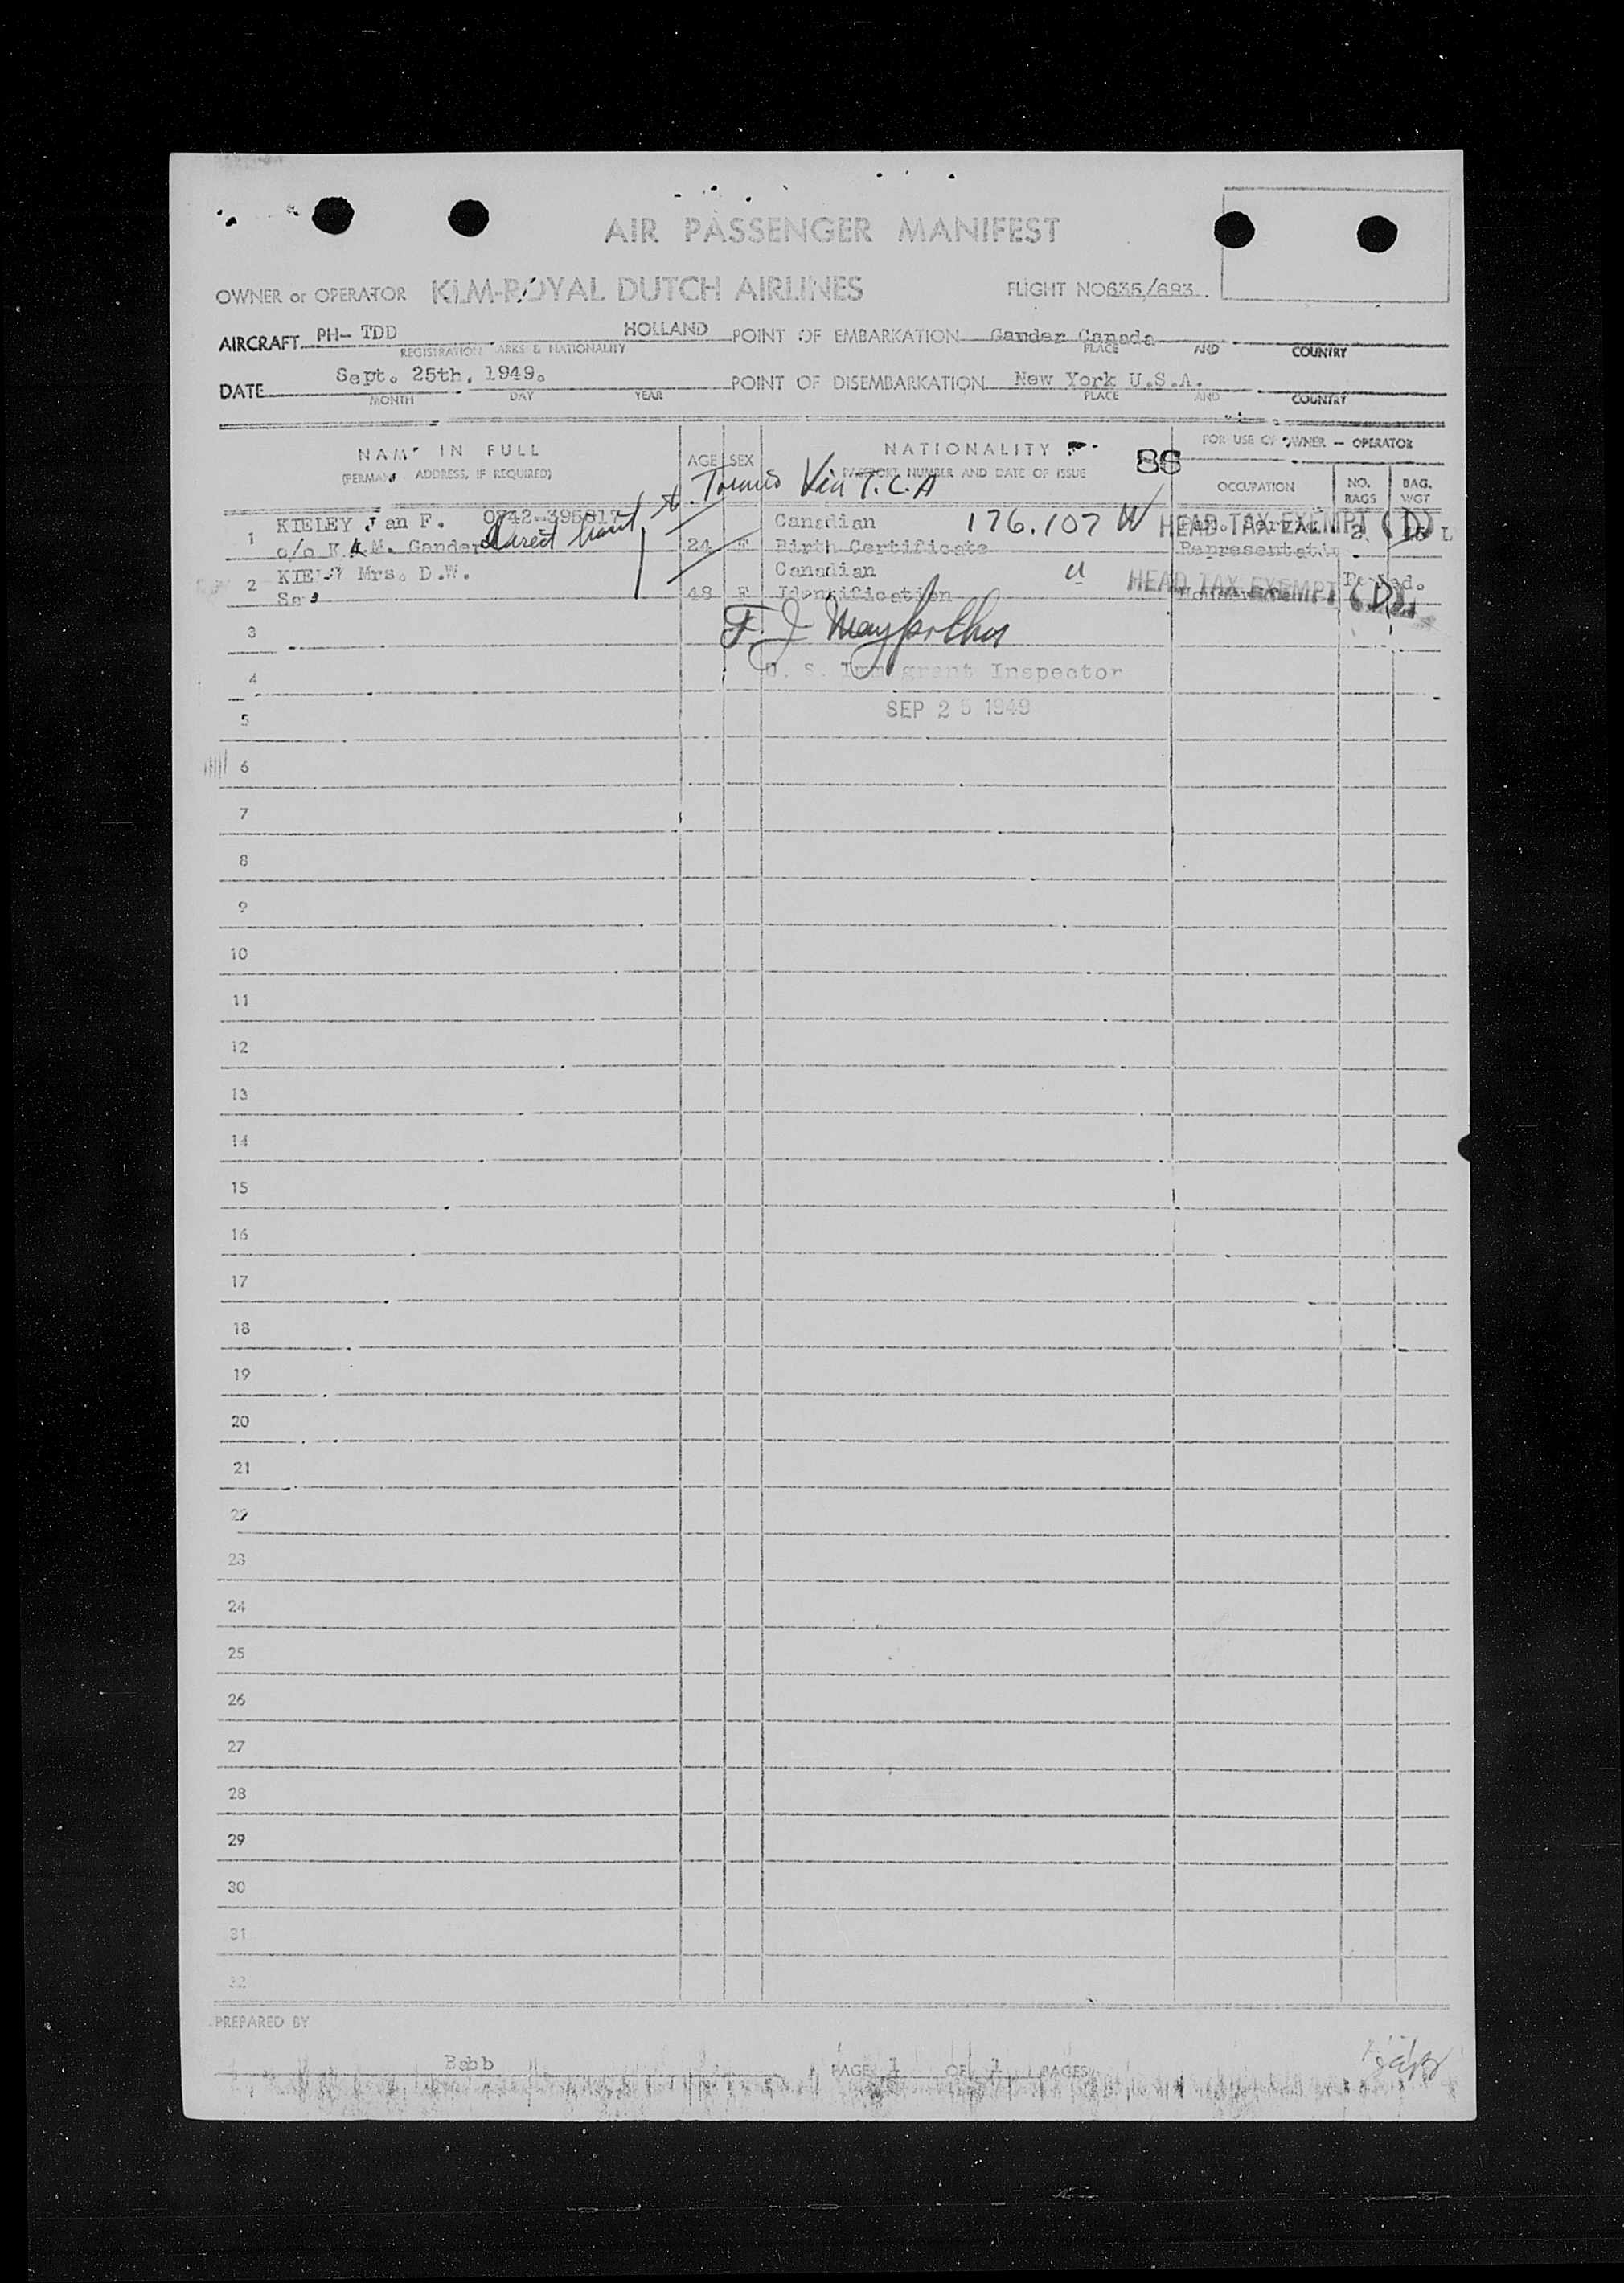 AIR PASSENGER MANIFEST
OWNER or OPERATOR KLM-ROYAL DUTCH AIRLINES FLIGHT NO 635/693.
AIRCRAFT PH- TDD HOLLAND POINT OF EMBARKATION Gander Canada
REGISTRATION MARKS & NATIONALITY PLACE AND COUNTRY
DATE Sept. 25th, 1949. POINT OF DISEMBARKATION New York U.S.A.
MONTH DAY YEAR PLACE AND COUNTRY
NAME IN FULL AGE SEX NATIONALITY FOR USE OF OWNER - OPERATOR
(PERMANENT ADDRESS, IF REQUIRED) PASSPORT NUMBER AND DATE OF ISSUE 86 OCCUPATION NO. BAGS BAG. WGT
to Toronto Via T.C.A
1 KIELEY Jean F. Canadian 176.107 W HEAD TAX EXEMPT (D)
c/o K.L.M. Gander Direct transit 24 F Birth Certificate
2 KIELEY Mrs. D.W. Canadian u HEAD TAX EXEMPT (D)
48 F Identification
3 F. J.
4 U. S. Immigrant Inspector
5 SEP 25 1949
6
7
8
9
10
11
12
13
14
15
16
17
18
19
20
21
22
23
24
25
26
27
28
29
30
31
32
PREPARED BY
Babb PAGE 1 OF 1 PAGES